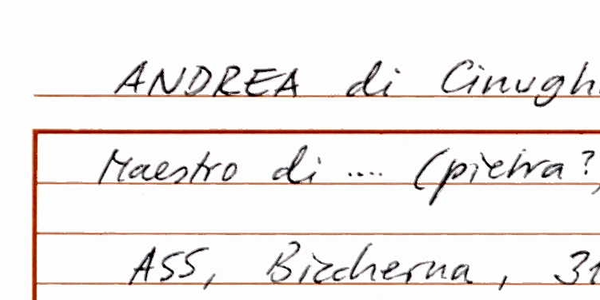 ANDREA di Cinugh
Maestro di .... (pietra?)
ASS, Biccherna, 31